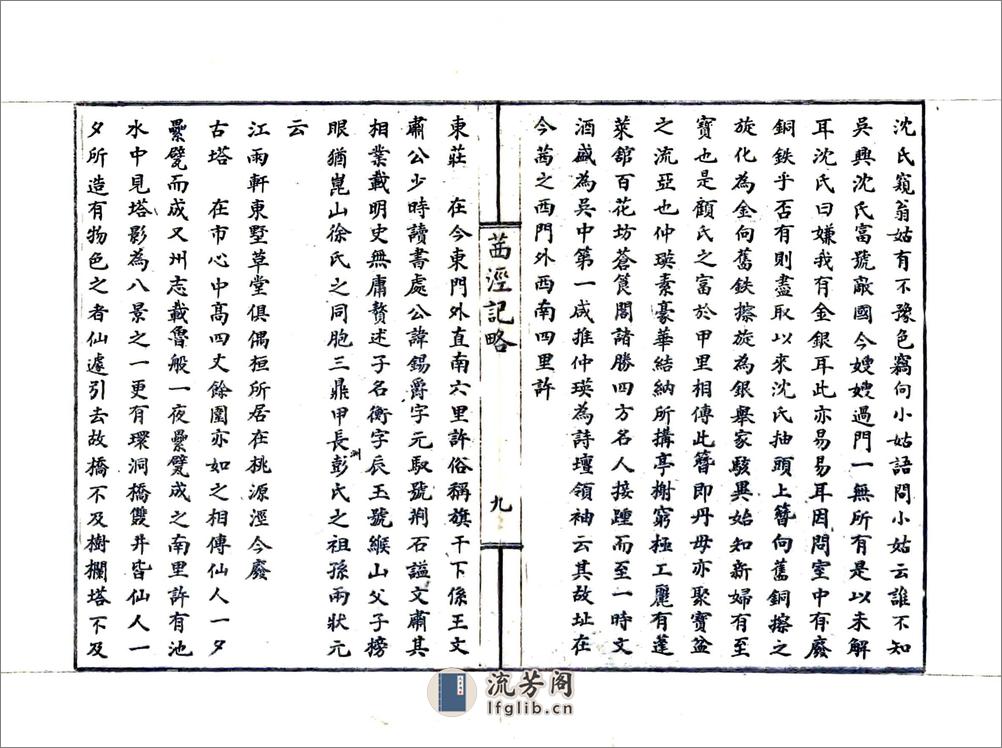 沈氏窺翁姑有不豫色竊向小姑語問小姑云誰不知
吳興沈氏富號敵國今嫂嫂過門一無所有是以未解
耳沈氏曰嫌我有金銀耳此亦易易耳因問室中有廢
銅鉄乎否有則盡取以來沈氏抽頭上簪向舊銅擦之
旋化為金向舊鉄擦旋為銀舉家駭異始知新婦有至
寶也是顧氏之富於甲里相傳此簪即丹母亦聚寶盆
之流亞也仲瑛素豪華結納所搆亭榭窮極工麗有蓬
萊舘百花坊蒼筤閣諸勝四方名人接踵而至一時文
酒盛為吳中第一咸推仲瑛為詩壇領袖云其故址在
今茜之西門外西南四里許
茜涇記略
九
東莊　在今東門外直南六里許俗稱旗干下係王文
肅公少時讀書處公諱錫爵字元馭號荊石謚文肅其
相業載明史無庸贅述子名衡字辰玉號緱山父子榜
眼猶崑山徐氏之同胞三鼎甲長洲彭氏之祖孫兩狀元
云
江雨軒東墅草堂俱偶桓所居在桃源涇今廢
古塔　在市心中高四丈餘圍亦如之相傳仙人一夕
壘甓而成又州志載魯般一夜壘甓成之南里許有池
水中見塔影為八景之一更有環洞橋雙井皆仙人一
夕所造有物色之者仙遽引去故橋不及樹欄塔不及
流芳阁
lfglib.cn